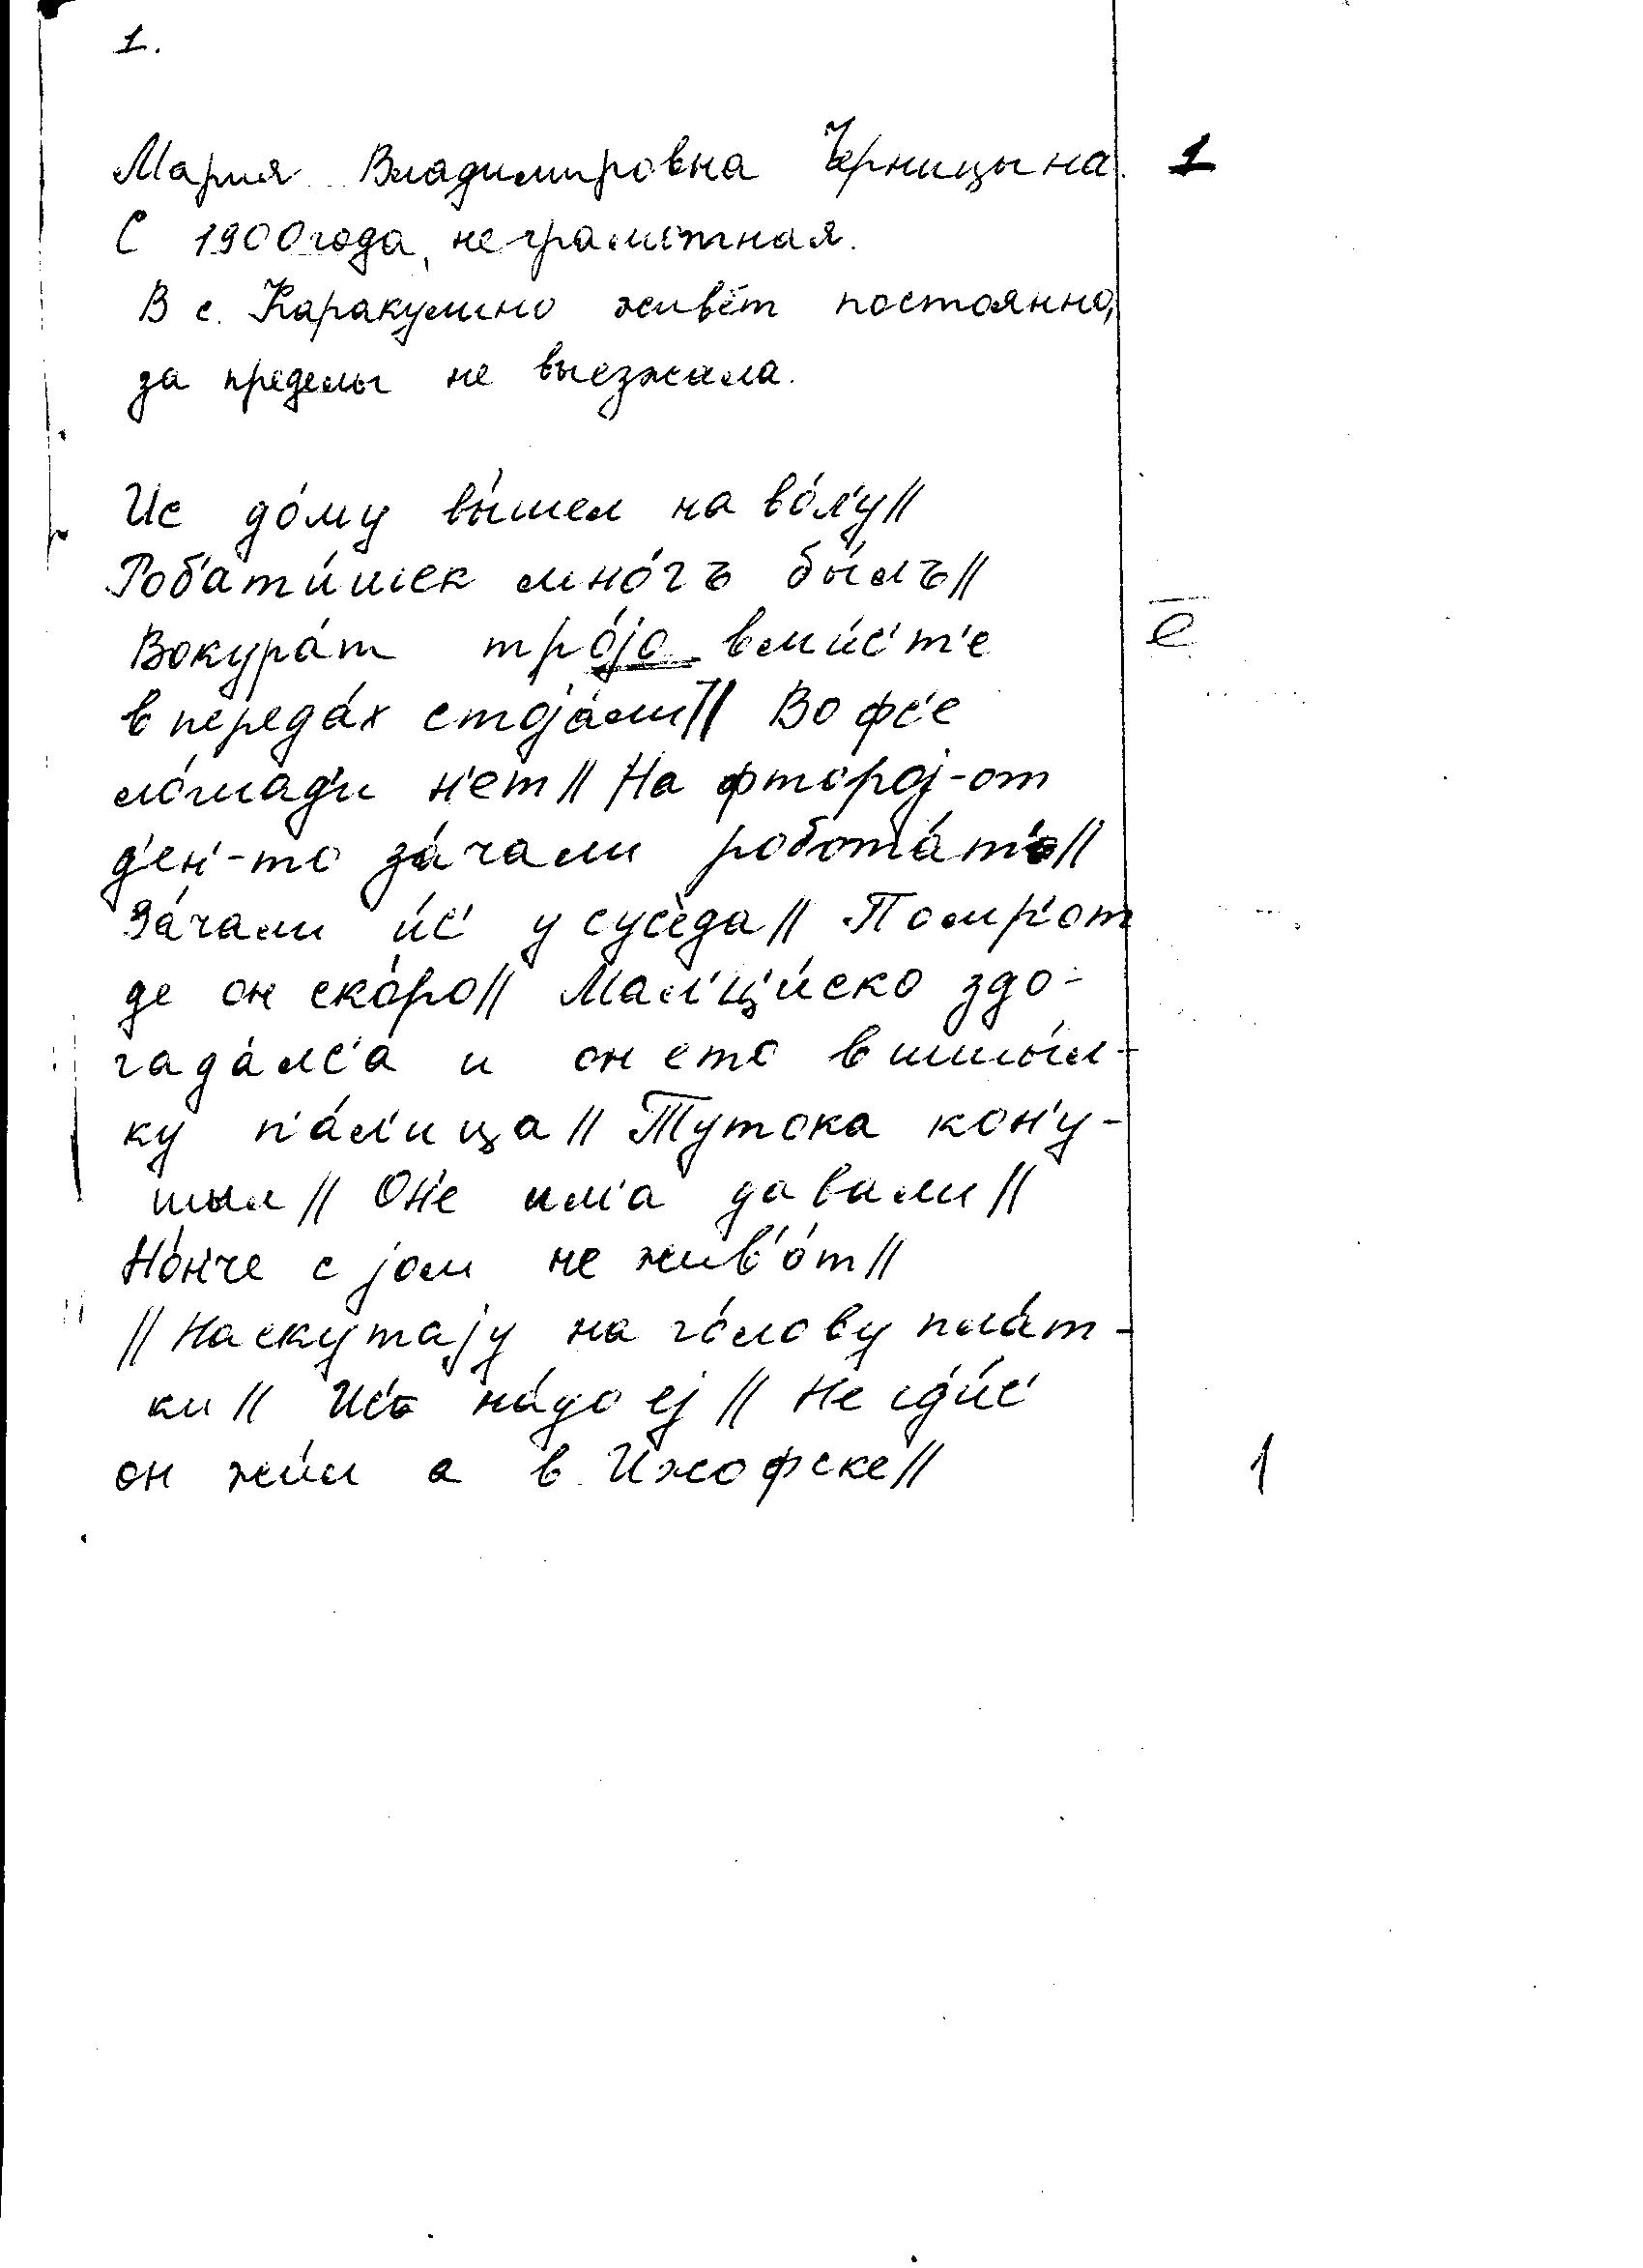 1.
Мария Владимировна Черницына. 1
С 1900 года, неграмотная.
В с. Каракулино живёт постоянно,
за пределы не выезжала.
Ис до́му вы́шел на во́л'у//
Роб'ати́шек мно́гъ бы́лъ//
Вокура́т тро́jо вми́с'т'е ē
в передах стоjа́ли// Во фс'е
ло́шад'и н'ет// На фторој-от
д'ен'-то за́чали робота́т'//
За́чали и́с' у сус'еда// Помр'от
де он ско́ро// Мал'ц'и́ско здо-
гада́лс'а и он ето в шшы́л-
ку п'а́л'ица// Тутока кон'у-
шыл// Он'е им'а давали//
Но́н'че с јом не жив'о́т//
// Наскутаjу на го́лову пла́т-
ки// Ис' на́до еј// Не гд'и́с'
он жы́л а в Ижофске// 1